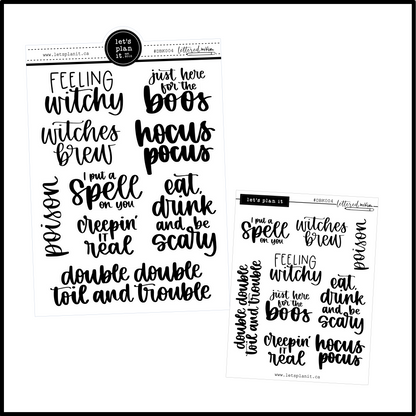 let's
plan
it.
www.letsplanit.ca
#DBK006 lettered mom
FEELING
witchy
just here
for the
boos
witches
brew
hocus
pocus
poison
I put a
Spell
on you
eat,
drink
and be
scary
creepin'
IT
real
double double
toil and trouble
let's plan it
#DBK006 lettered mom
I put a
Spell
on you
witches
brew
poison
FEELING
witchy
double double
toil and trouble
just here
for the
boos
eat,
drink
and be
scary
creepin'
IT
real
hocus
pocus
www.letsplanit.ca